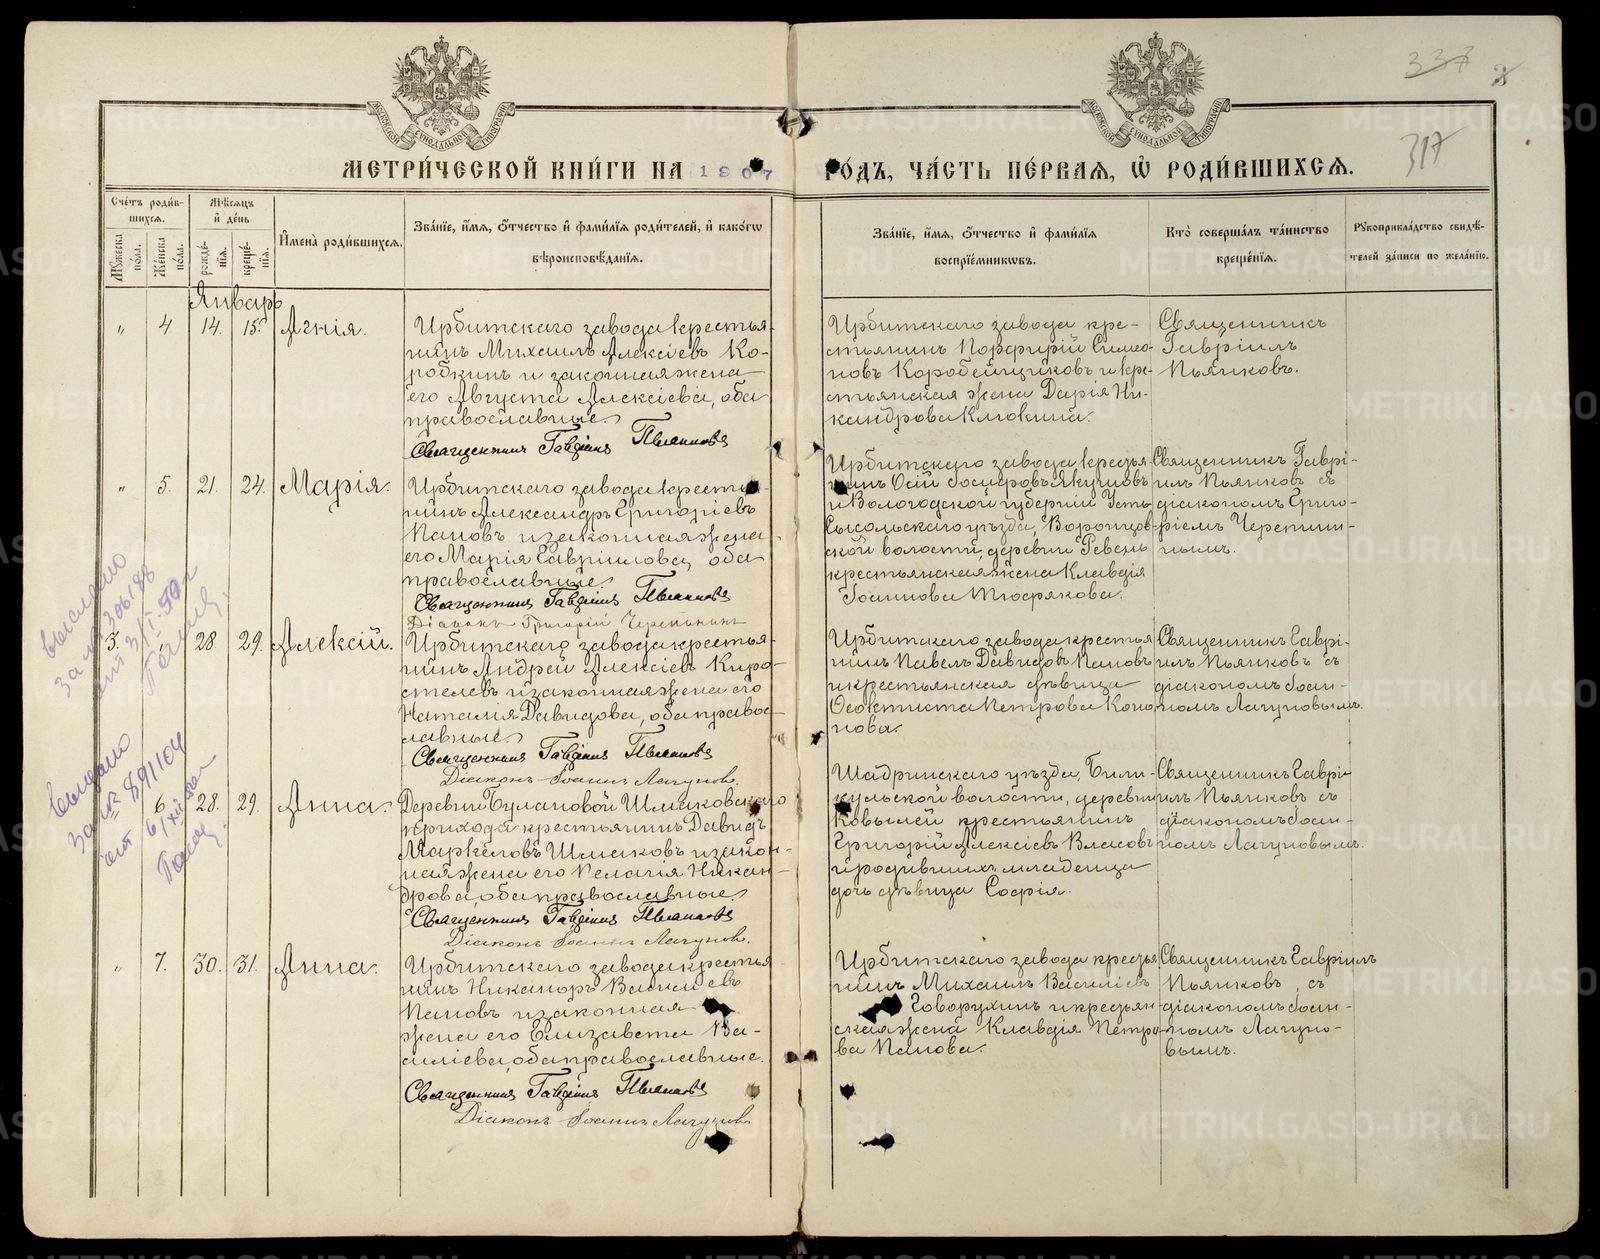 337
317
МОСКОВСКОЙ СѴНОДАЛЬНОЙ ТИПОГРАФІИ
МОСКОВСКОЙ СѴНОДАЛЬНОЙ ТИПОГРАФІИ
МЕТРИ́ЧЕСКОЙ КНИ́ГИ НА 1907
ГО́ДЪ, ЧА́СТЬ ПЕ́РВАѦ, Ѿ РОДИ́ВШИХСѦ.
Сче́тъ роди́в-
шихсѧ.
Мꙋжеска
пола.
Же́нска
по́ла.
Мѣ́сѧцъ
и҆ де́нь
рожде́-
нїѧ.
креще́-
нїѧ.
И҆мена̀ роди́вшихсѧ.
Зва́нїе, и҆́мѧ, ѻ҆́тчество и҆ фами́лїѧ роди́телей, и҆ како́гѡ
вѣроисповѣ́данїѧ.
Зва́нїе, и҆́мѧ, ѻ҆́тчество и҆ фами́лїѧ
воспрїе́мникѡвъ.
Кто̀ соверша́лъ та́инство
креще́нїѧ.
Рꙋкоприкла́дство свидѣ́-
телей за́писи по жела́нїю.
Январь
" 4 14. 15. Агнія.
Ирбитскаго завода крестья-
нинъ Михаилъ Алексіевъ Ко-
робкинъ и законная жена
его Августа Алексіева, оба
православные.
Священникъ Гавріилъ Пьянковъ
Ирбитскаго завода кре-
стьянинъ Порфирій Симео-
новъ Коробейщиковъ и кре-
стьянская жена Дарія Ни-
кандрова Клюкина.
Священникъ
Гавріилъ
Пьянковъ.
" 5. 21. 24. Марія.
Ирбитскаго завода крестья-
нинъ Александръ Григоріевъ
Пановъ и законная жена
его Марія Гавриловa, оба
православные.
Священникъ Гавріилъ Пьянковъ
Діаконъ Григорій Черепанинъ
Ирбитскаго завода крестья-
нинъ Осій Іосифовъ Якуновъ
и Вологодской губерніи Усть-
Сысольскаго уѣзда, Воронцов-
ской волости, деревни Ревень
крестьянская жена Клавдія
Іоаннова Тюсрякова.
Священникъ Гаврі-
илъ Пьянковъ съ
діакономъ Григо-
ріемъ Черепани-
нымъ.
5. " 28. 29. Алексій.
Ирбитскаго завода крестья-
нинъ Андрей Алексіевъ Коро-
стелевъ и законная жена его
Наталія Давидова, оба правос-
лавные.
Священникъ Гавріилъ Пьянковъ
Діаконъ Іоаннъ Лагуновъ.
Ирбитскаго завода крестья-
нинъ Павелъ Давидовъ Пановъ
и крестьянская дѣвица
Феоктиста Петрова Коно-
нова.
Священникъ Гаврі-
илъ Пьянковъ съ
діакономъ Іоан-
номъ Лагуновымъ.
" 6. 28. 29. Анна.
Деревни Булановой Шмаковскаго
прихода крестьянинъ Давидъ
Маркеловъ Шмаковъ и закон-
ная жена его Пелагія Никан-
дрова, оба православные.
Священникъ Гавріилъ Пьянковъ
Діаконъ Іоаннъ Лагуновъ.
Шадринскаго уѣзда, Били-
кульской волости, деревни
Ковылей крестьянинъ
Григорій Алексіевъ Власовъ
и родившихъ младенца
дочь дѣвица Софія.
Священникъ Гаврі-
илъ Пьянковъ съ
діакономъ Іоан-
номъ Лагуновымъ.
" 7. 30. 31. Анна.
Ирбитскаго завода крестья-
нинъ Никаноръ Васильевъ
Пановъ и законная
жена его Елизавета Ва-
силіева, оба православные.
Священникъ Гавріилъ Пьянковъ
Діаконъ Іоаннъ Лагуновъ
Ирбитскаго завода крестья-
нинъ Михаилъ Василіевъ
Говорухинъ и крестьян-
ская жена Клавдія Петро-
ва Панова.
Священникъ Гавріилъ
Пьянковъ, съ
діакономъ Іоан-
номъ Лагуно-
вымъ.
выслано
за № 306188
от 31/I-50г
выслано
за № 891104
от 6/XII
METRIKI.GASO-URAL.RU